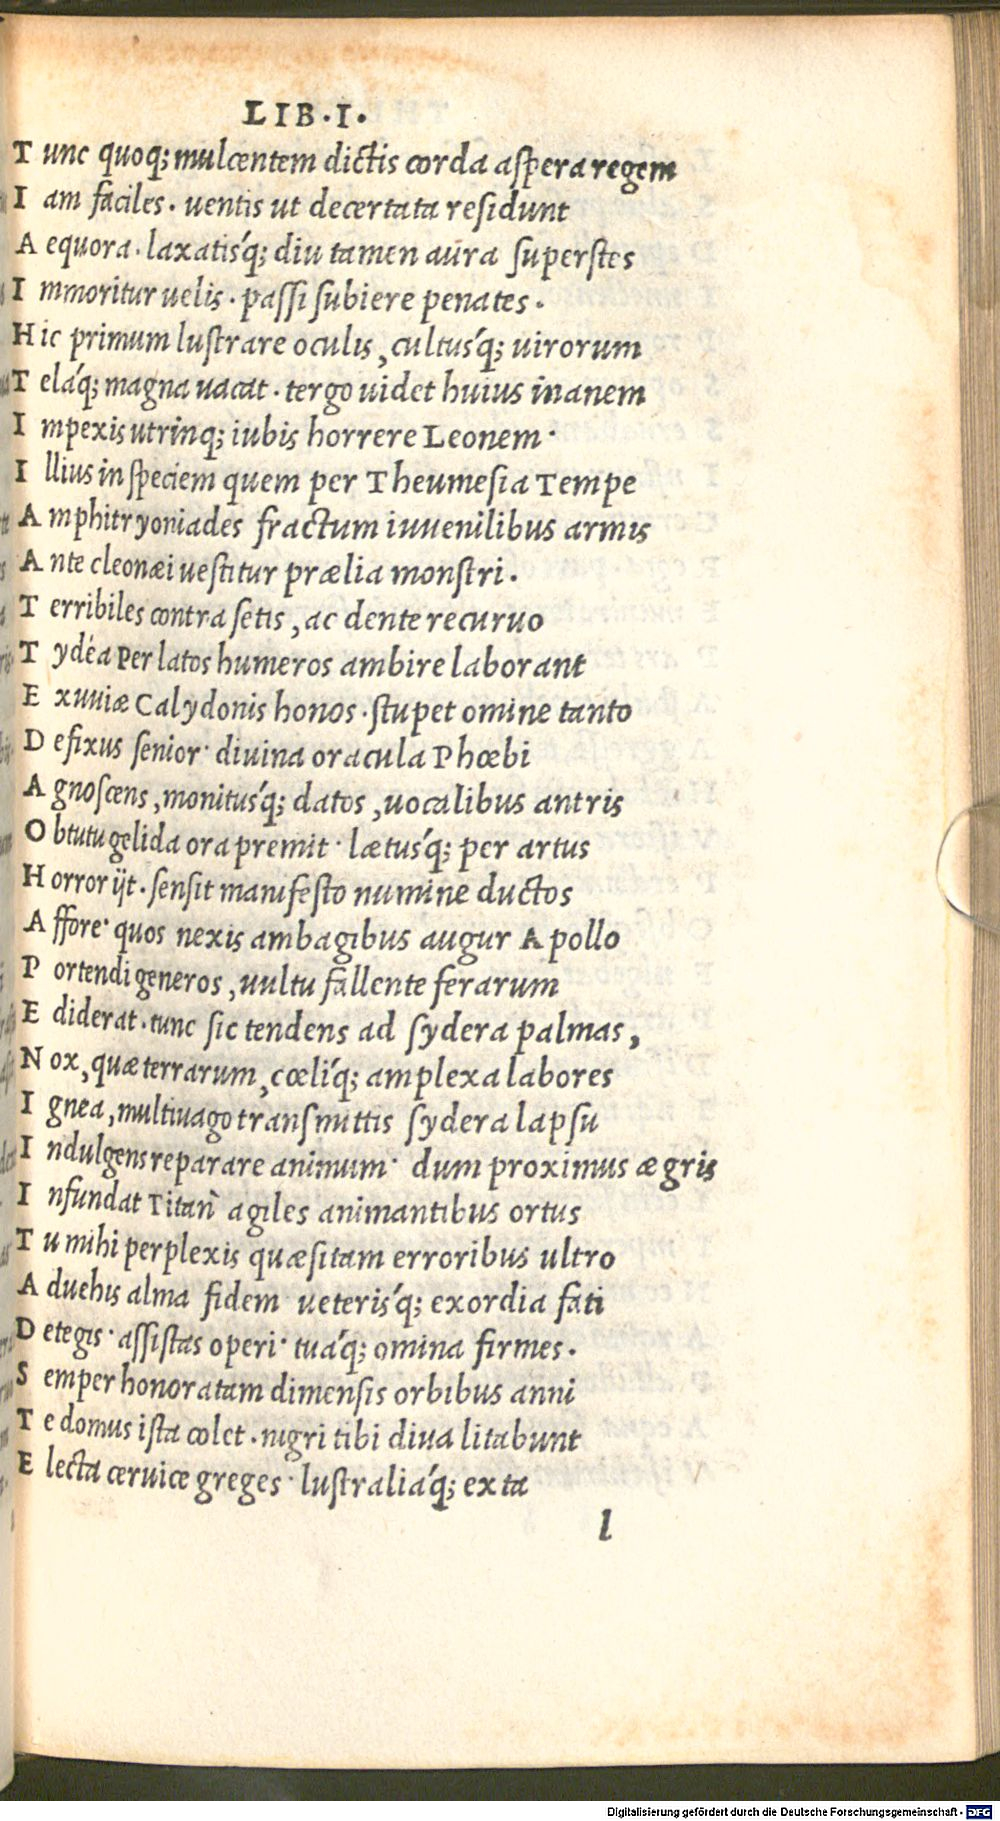 LIB·I·
Tunc quoq; mulcentem dictis corda aspera regem
Iam faciles· uentis ut decertata residunt
Aequora· laxatisq́; diu tamen aura superstes
Immoritur uelis· passi subiere penates·
Hic primum lustrare oculis, cultusq́; uirorum
Teláq; magna uacat· tergo uidet huius inanem
Impexis utrinq; iubis horrere Leonem·
Illius in speciem quem per Theumesia Tempe
Amphitryoniades fractum iuuenilibus armis
Ante cleonæi uestitur prælia monstri·
Terribiles contra setis, ac dente recuruo
Tydéa per latos humeros ambire laborant
Exuuiæ Calydonis honos· stupet omine tanto
Defixus senior· diuina oracula Phœbi
Agnoscens, monitusq́; datos, uocalibus antris
Obtutu gelida ora premit· lætusq́; per artus
Horror ijt· sensit manifesto numine ductos
Affore· quos nexis ambagibus augur Apollo
Portendi generos, uultu fallente ferarum
Ediderat· tunc sic tendens ad sydera palmas,
Nox, quæ terrarum, cœliq́; amplexa labores
Ignea, multiuago transmittis sydera lapsu
Indulgens reparare animum· dum proximus ægris
Infundat Titan̄ agiles animantibus ortus
Tu mihi perplexis quæsitam erroribus ultro
Aduehis alma fidem ueterisq́; exordia fati
Detegis· assistas operi· tuáq; omina firmes·
Semper honoratam dimensis orbibus anni
Te domus ista colet· nigri tibi diua litabunt
Electa ceruice greges· lustraliáq; exta
l
Digitalisierung gefördert durch die Deutsche Forschungsgemeinschaft · DFG